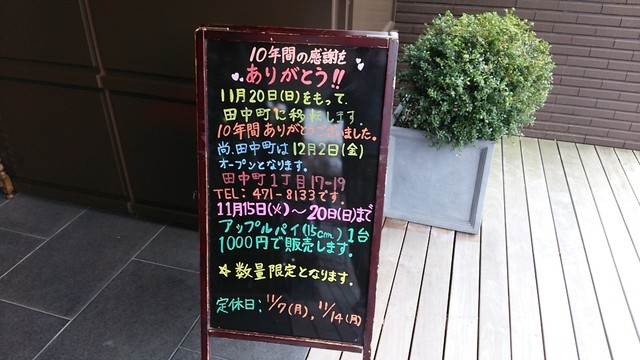 10年間の感謝を
ありがとう!!
11月20日(日)をもって、
田中町に移転します。
10年間ありがとうございました。
尚、田中町は12月2日(金)
オープンとなります。
田中町1丁目17-19
TEL: 471-8133です。
11月15日(火)~20日(日)まで
アップルパイ(15cm)1台
1000円で販売します。
☆数量限定となります。
定休日: 11/7(月)、11/14(月)